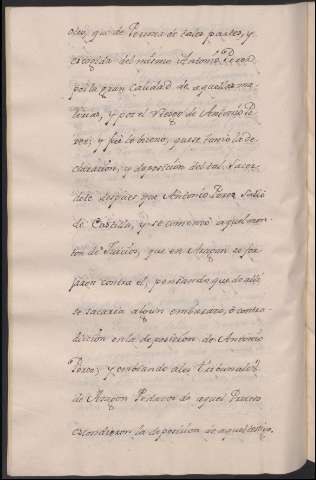 otro, que de Persona de tales partes, y
escogida del mismo Antonio Perez
por la gran calidad de aquellas ma-
terias, y por el riesgo de Antonio Pe-
rez; y fué lo bueno, que se tomó la de-
claracion, y deposicion del tal Sacer-
dote despues que Antonio Perez salió
de Castilla, y se comenzó aquel mon-
ton de Juicios, que en Aragon se for-
jaron contra el, pensando que de allí
se sacaría algun embarazo, ó contra-
diccion en la deposicion de Antonio
Perez; y embiando a los Tribunales
de Aragon Pedazos de aquel Proceso
escondieron la deposicion de aquel testigo,